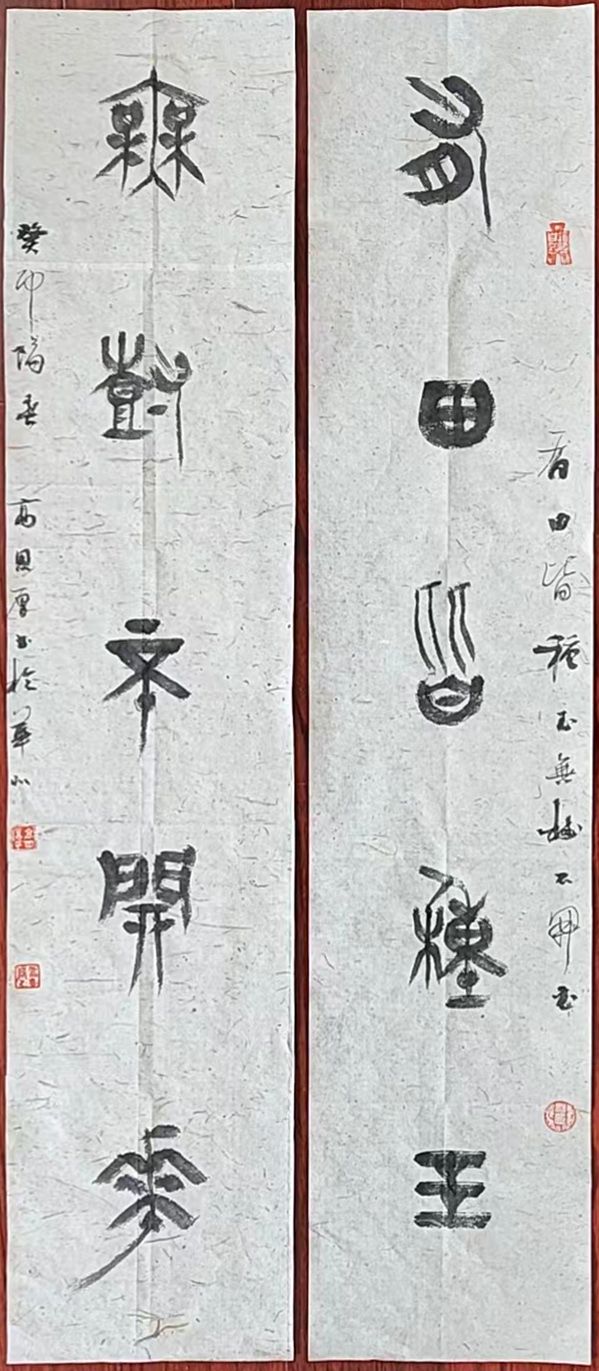 有田皆種玉
有田皆種玉無樹不開花
無樹不開花
癸卯陽春 高恩厚書於華北